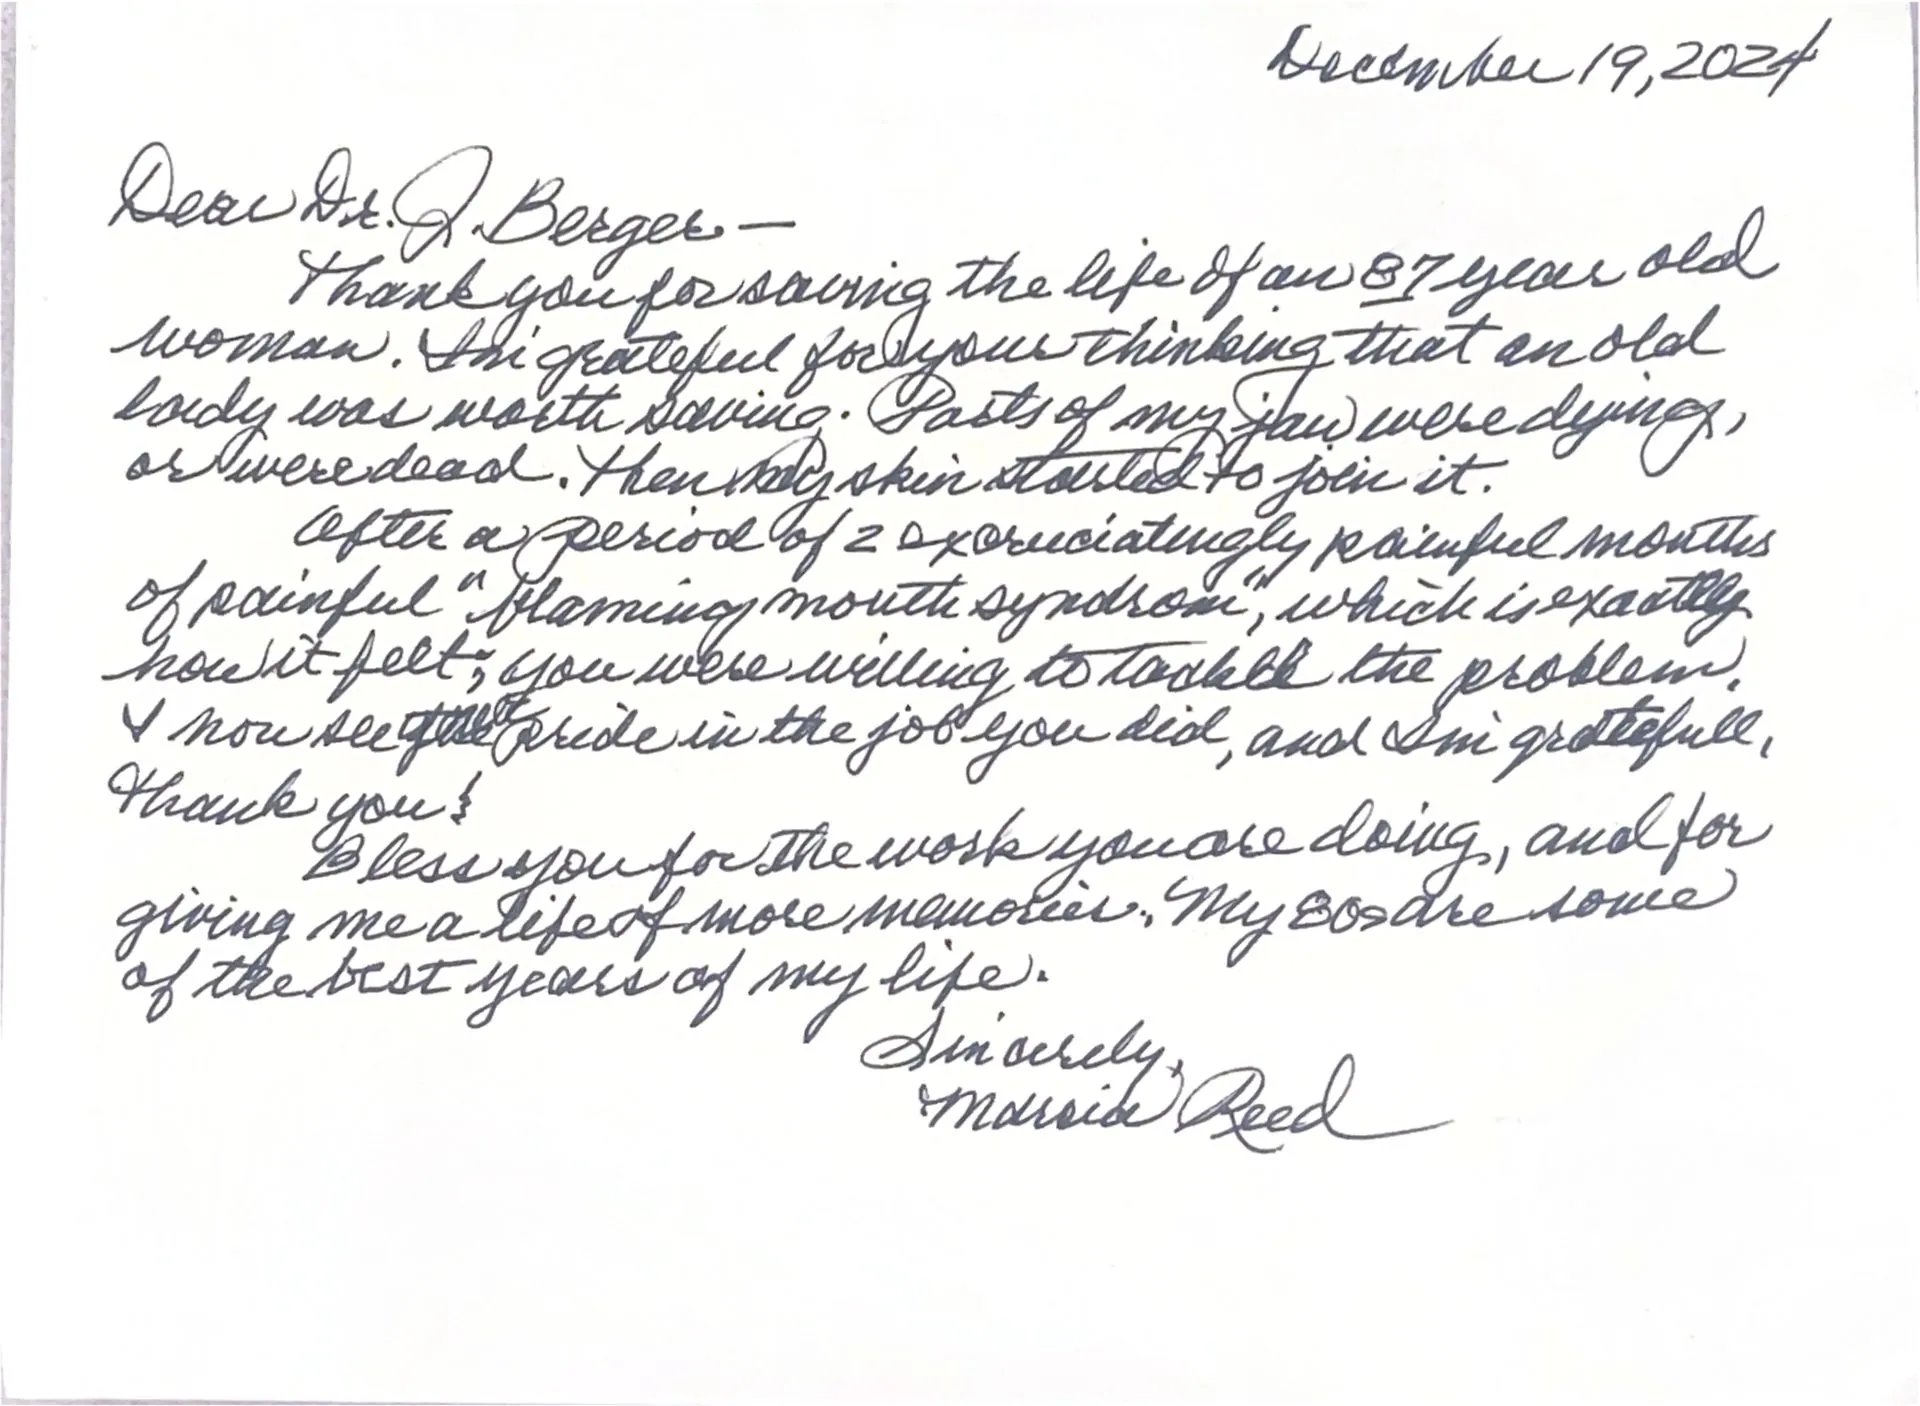 December 19, 2024
Dear Dr. J. Berger –
Thank you for saving the life of an 87 year old
woman. I'm grateful for your thinking that an old
lady was worth saving. Parts of my jaw were dying,
or were dead. Then my skin started to join it.
After a period of 2 excruciatingly painful months
of painful "flaming mouth syndrom", which is exactly
how it felt; you were willing to tackle the problem.
I now see the pride in the job you did, and I'm gratefull,
Thank you!
Bless you for the work you are doing, and for
giving me a life of more memories. My 80s are some
of the best years of my life.
Sincerely,
Marcia Reed